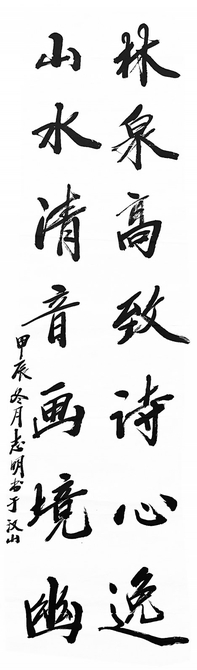 林泉高致诗心逸
山水清音画境幽
甲辰冬月志明书于汉山